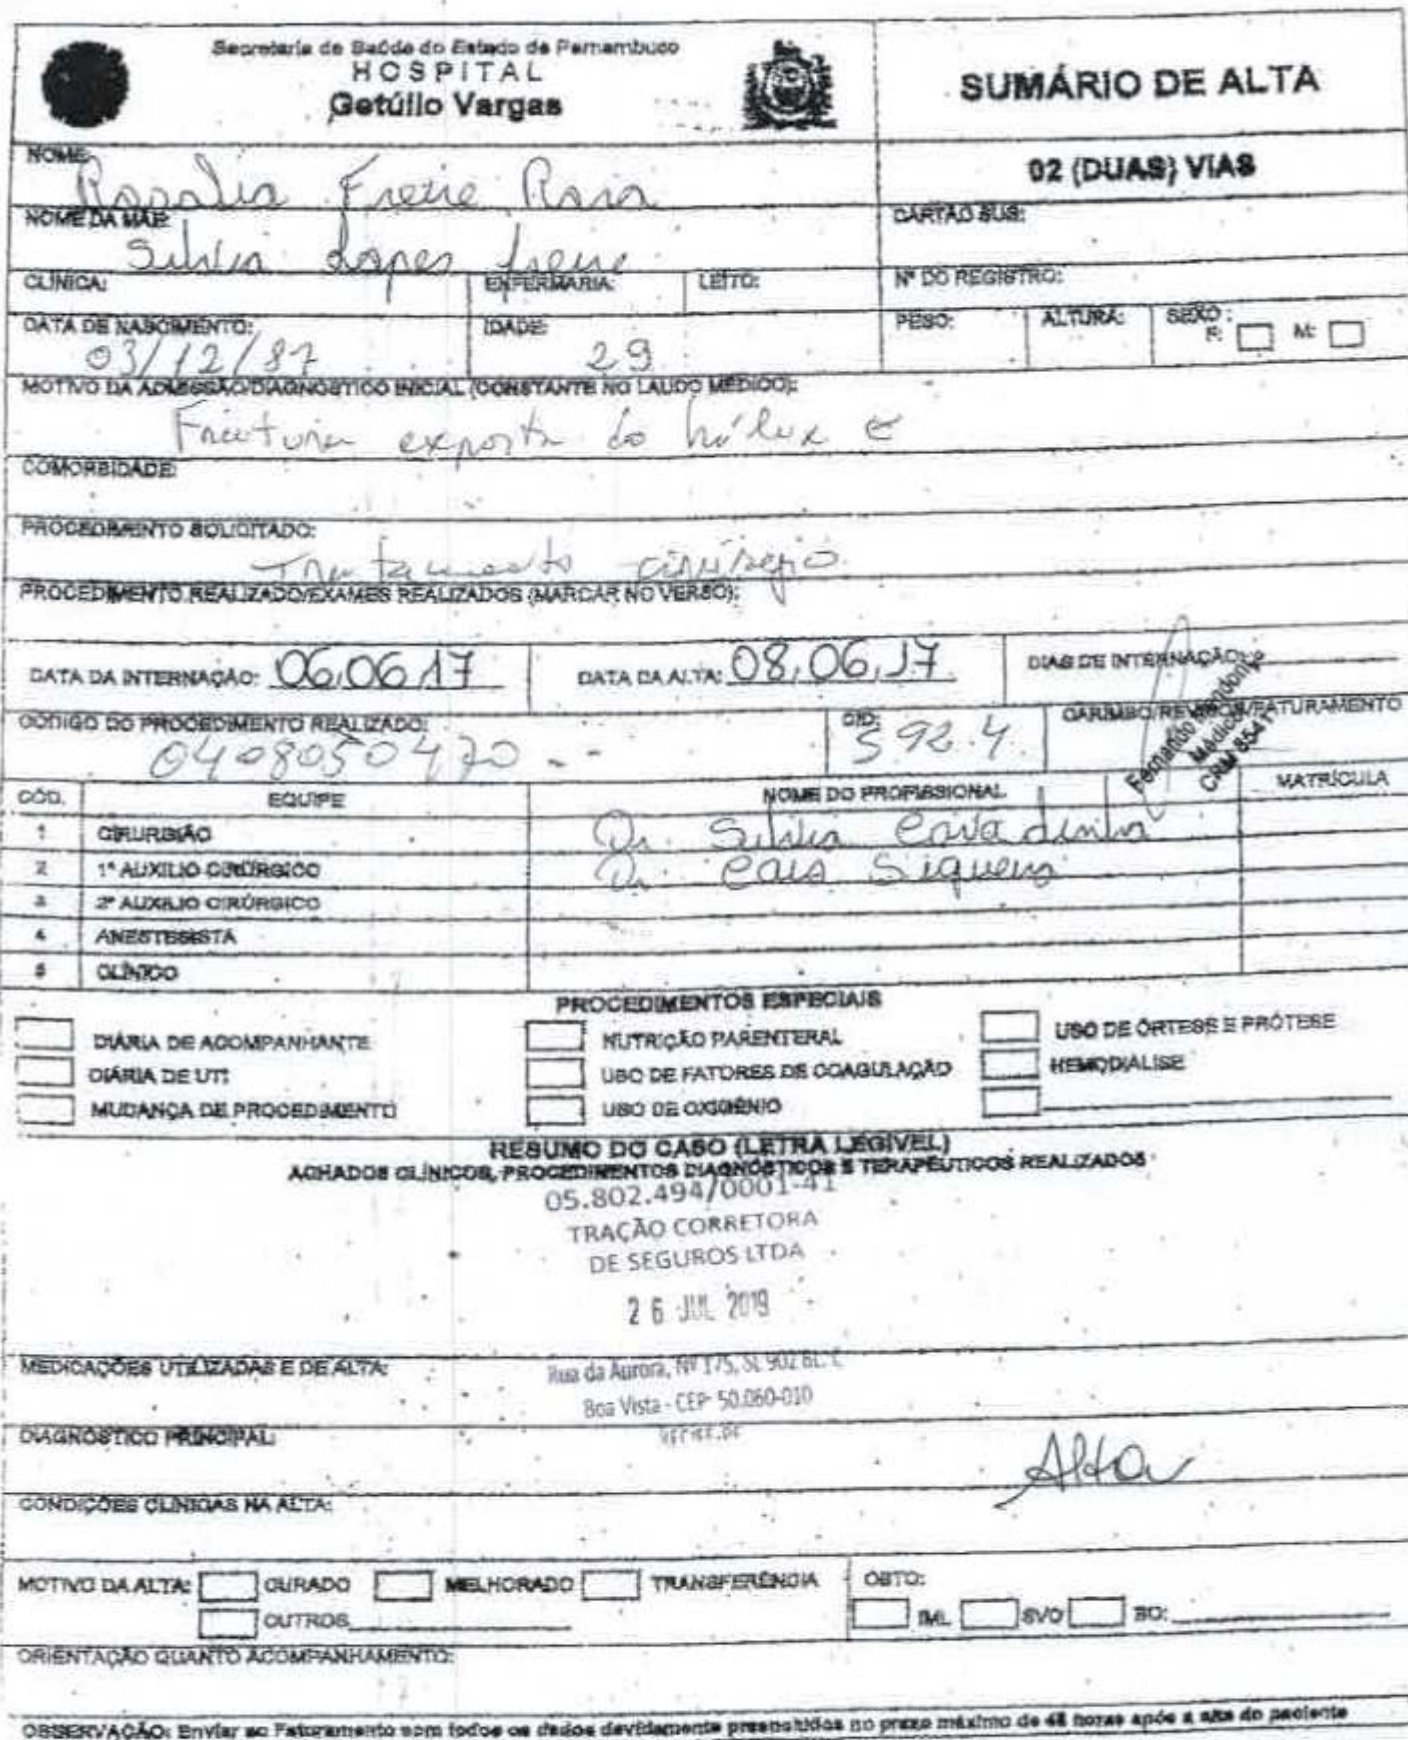 Secretaria de Saúde do Estado de Pernambuco
HOSPITAL
Getúlio Vargas
SUMÁRIO DE ALTA
02 (DUAS) VIAS
NOME:
Freire
NOME DA MÃE:
Silvia Lopes Freire
CARTÃO SUS:
CLÍNICA:
ENFERMARIA:
LEITO:
Nº DO REGISTRO:
DATA DE NASCIMENTO:
03/12/87
IDADE:
29
PESO:
ALTURA:
SEXO:
F: M:
MOTIVO DA ADMISSÃO/DIAGNÓSTICO INICIAL (CONSTANTE NO LAUDO MÉDICO):
Fratura exposta do hálux E
COMORBIDADE:
PROCEDIMENTO SOLICITADO:
Tratamento cirúrgio
PROCEDIMENTO REALIZADO/EXAMES REALIZADOS (MARCAR NO VERSO):
DATA DA INTERNAÇÃO: 06.06.17
DATA DA ALTA: 08.06.17
DIAS DE INTERNAÇÃO:
CÓDIGO DO PROCEDIMENTO REALIZADO:
0408050470 -
CID:
S 92.4
CARIMBO/REVISOR/FATURAMENTO
Fernando Mendonça
Médico
CRM 8541
CÓD. EQUIPE NOME DO PROFISSIONAL MATRÍCULA
1 CIRURGIÃO Dr. Silvia Cavadinha
2 1º AUXILIO CIRÚRGICO Dr. Caio Siqueira
3 2º AUXILIO CIRÚRGICO
4 ANESTESISTA
5 CLÍNICO
PROCEDIMENTOS ESPECIAIS
DIÁRIA DE ACOMPANHANTE
NUTRIÇÃO PARENTERAL
USO DE ÓRTESE E PRÓTESE
DIÁRIA DE UTI
USO DE FATORES DE COAGULAÇÃO
HEMODIALISE
MUDANÇA DE PROCEDIMENTO
USO DE OXIGÊNIO
RESUMO DO CASO (LETRA LEGÍVEL)
ACHADOS CLÍNICOS, PROCEDIMENTOS DIAGNÓSTICOS E TERAPÊUTICOS REALIZADOS
05.802.494/0001-41
TRAÇÃO CORRETORA
DE SEGUROS LTDA
26 JUL 2019
MEDICAÇÕES UTILIZADAS E DE ALTA:
Rua da Aurora, Nº 175, SL 902 BL. C
Boa Vista - CEP 50.060-010
RECIFE-PE
DIAGNÓSTICO PRINCIPAL:
Alta
CONDIÇÕES CLÍNICAS NA ALTA:
MOTIVO DA ALTA: CURADO MELHORADO TRANSFERÊNCIA
OUTROS
ÓBITO:
IML SVO BO:
ORIENTAÇÃO QUANTO ACOMPANHAMENTO:
OBSERVAÇÃO: Enviar ao Faturamento com todos os dados devidamente preenchidos no prazo máximo de 48 horas após a alta do paciente